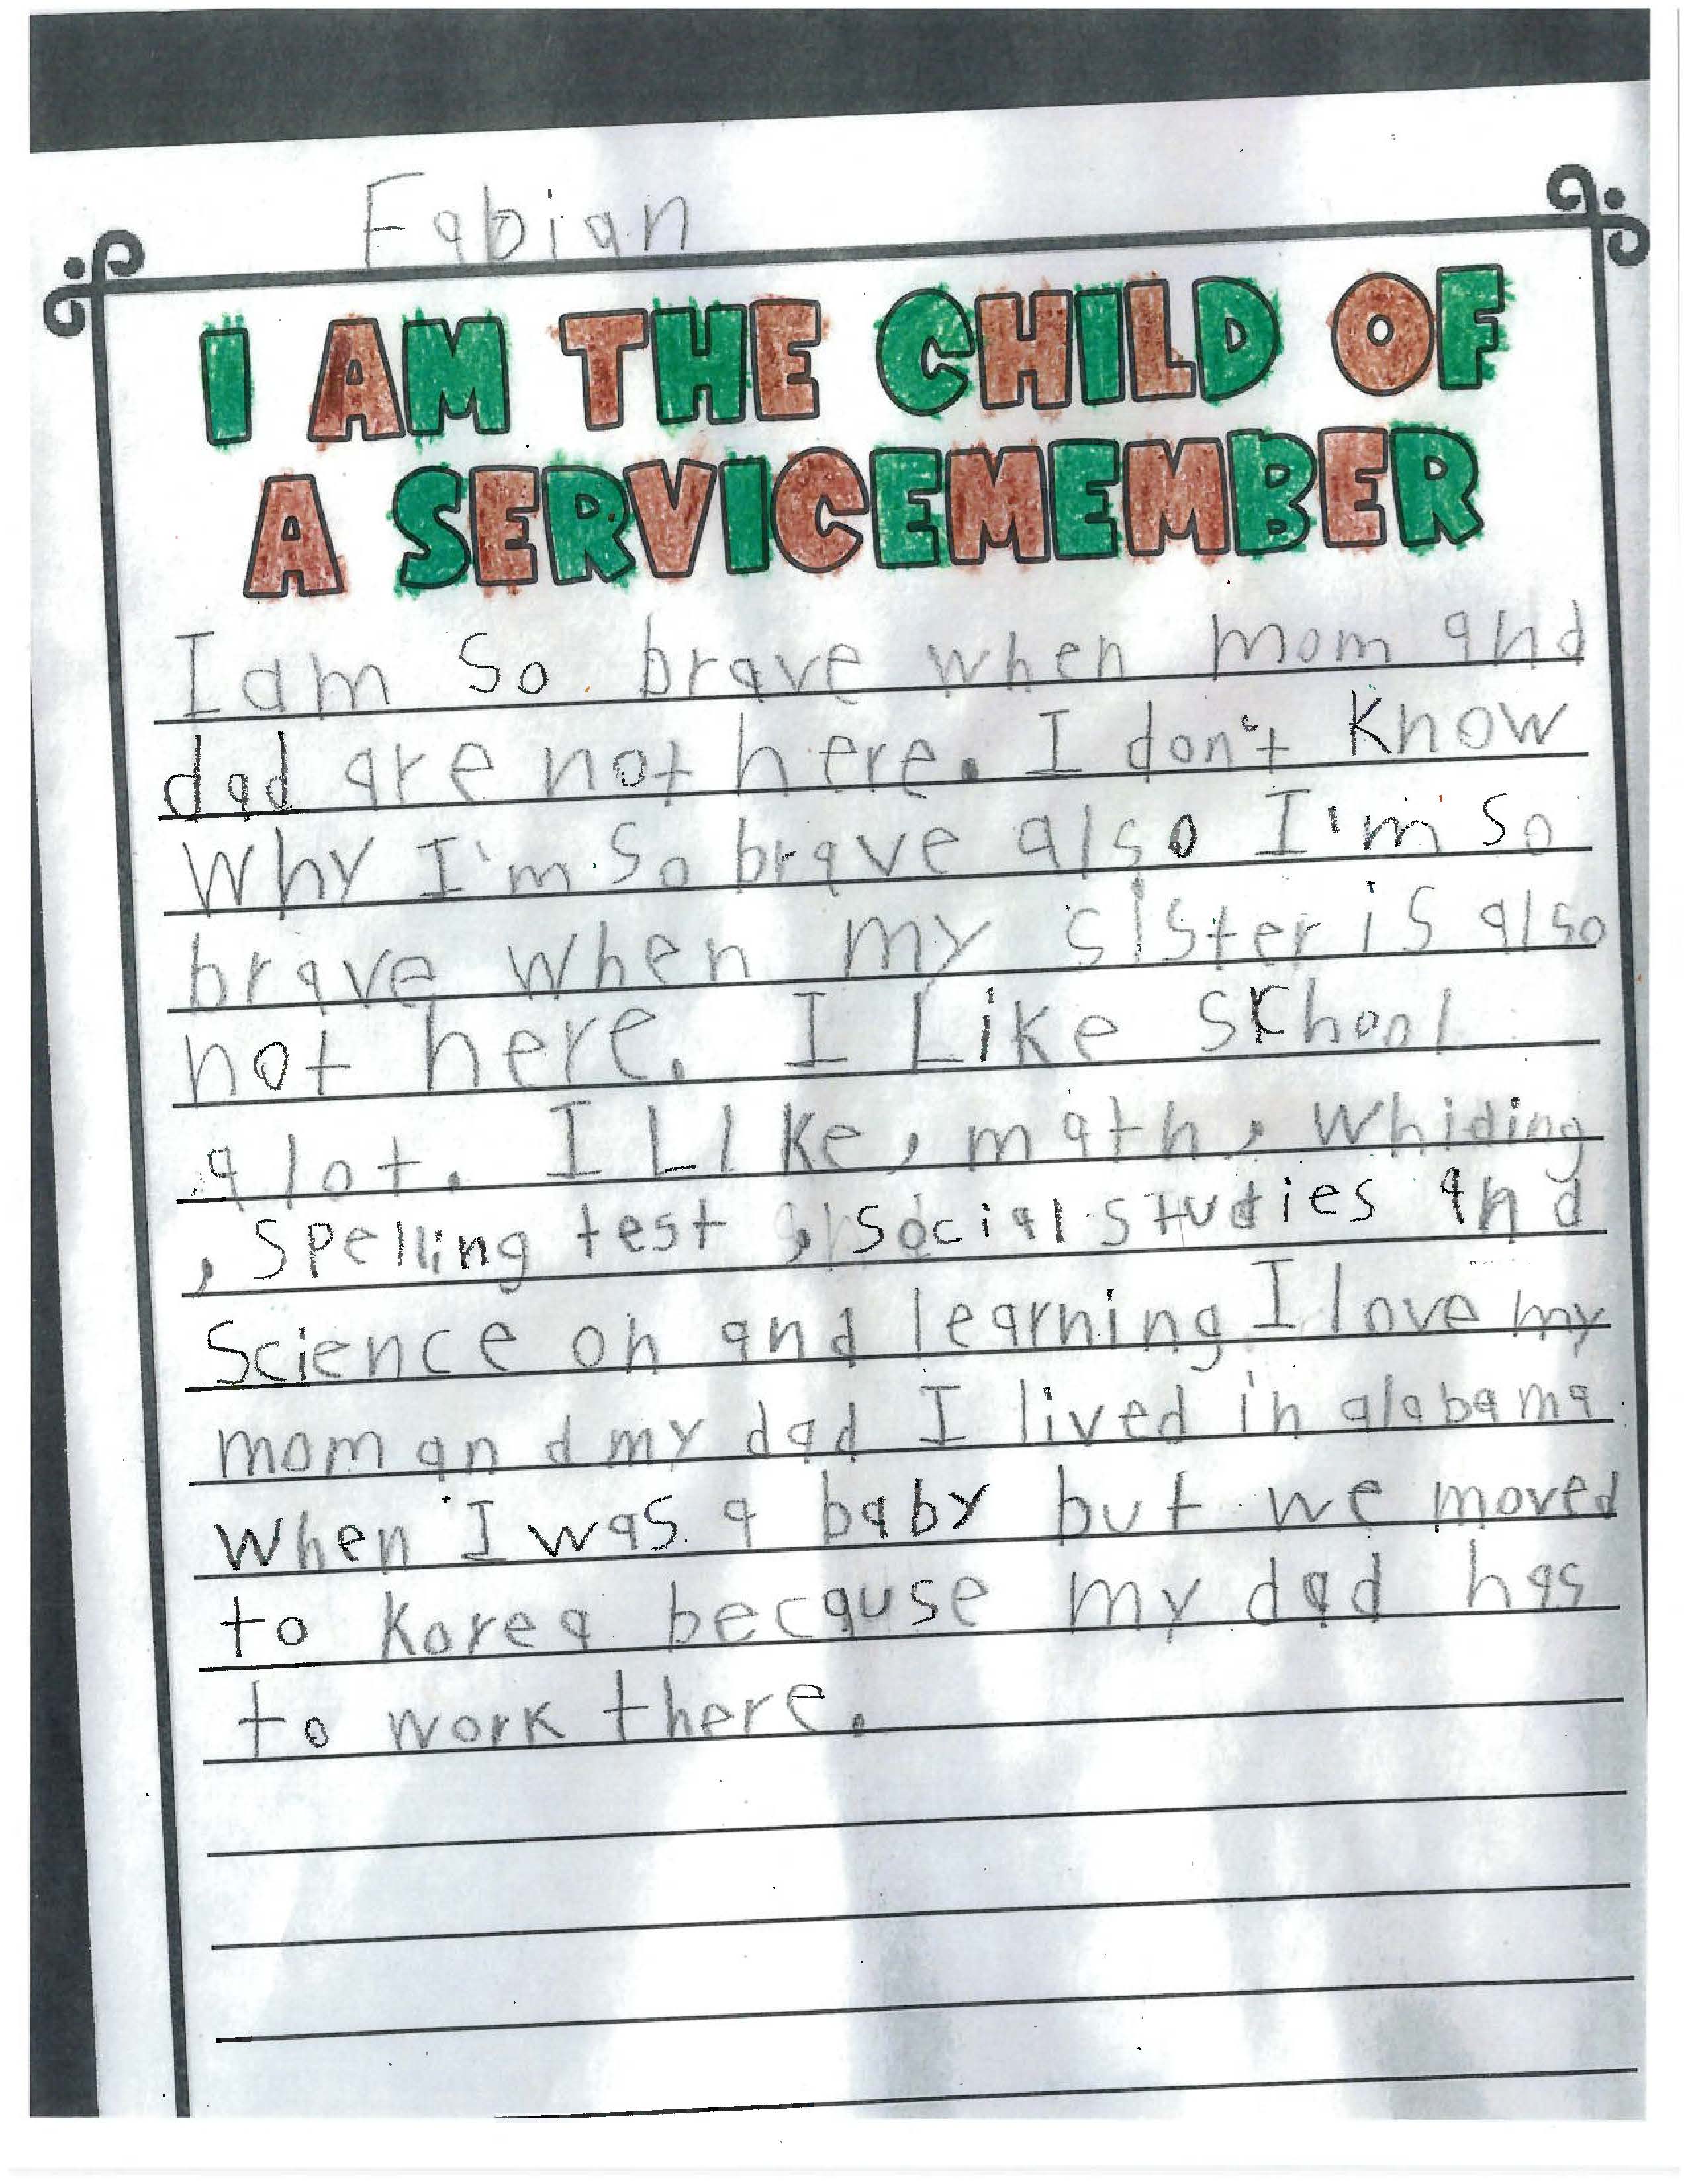 Fabian
I AM THE CHILD OF
A SERVICEMEMBER
I am so brave when mom and
dad are not here. I don't know
Why I'm so brave also I'm so
brave when my sister is also
not here. I Like school
a lot. I LIke, math, whiding
, spelling test , social studies and
Science oh and learning I love my
mom an d my dad I lived in alabama
when I was a baby but we moved
to Korea because my dad has
to work there.